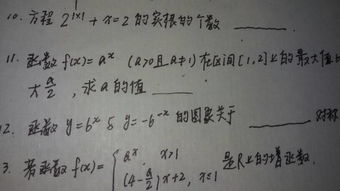 10. 方程 2^|x| + x = 2 的实根的个数 ______.
11. 函数 f(x) = a^x (a>0且a≠1) 在区间[1,2]上的最大值比
大 a/2 , 求a的值 ______
12. 函数 y=6^x 与 y=-6^-x 的图象关于 ______ 对称
3. 若函数 f(x) = { a^x, x>1
(4-a/2)x+2, x≤1 是R上的增函数.